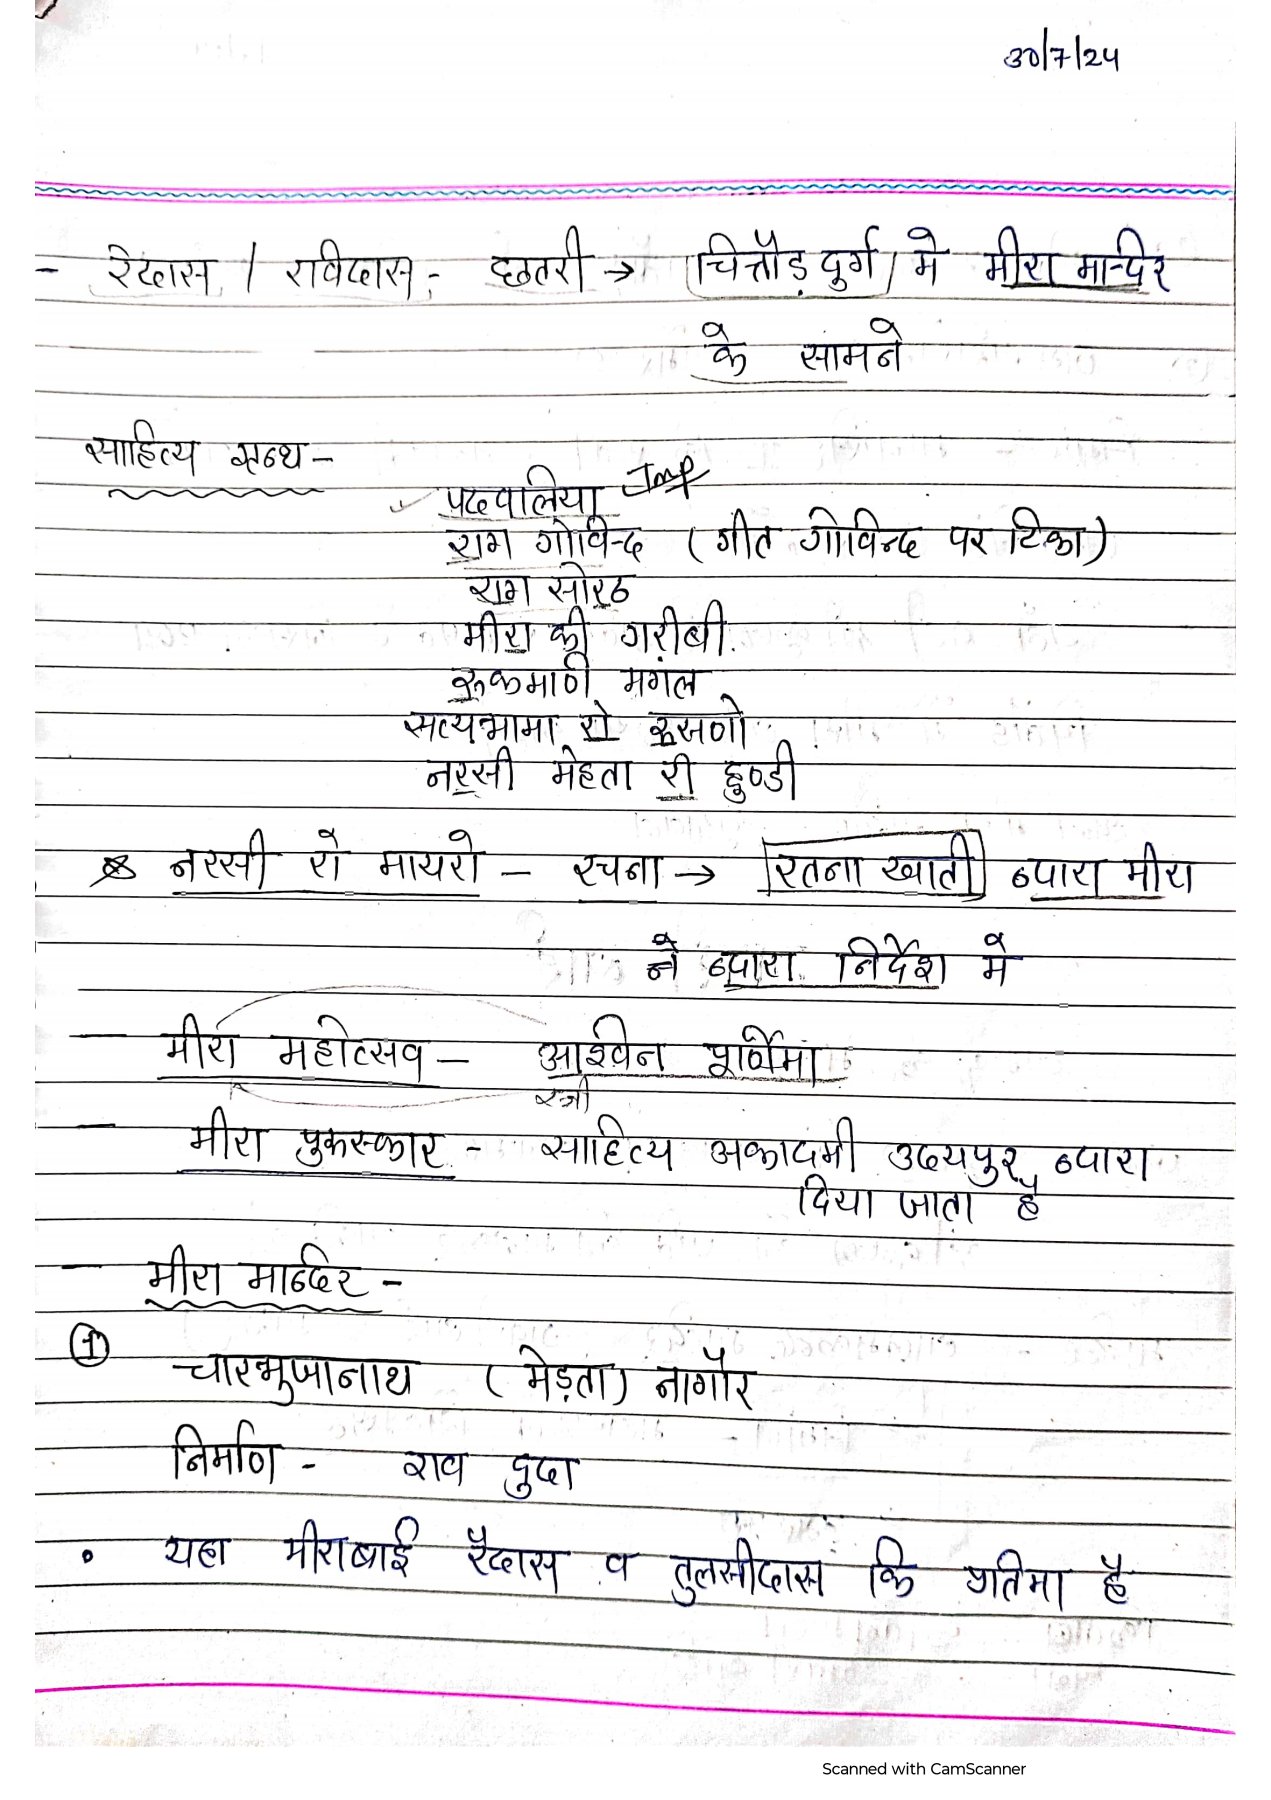 30/7/24
- रेदास / रविदास - छतरी → चित्तौड़ दुर्ग मे मीरा मन्दिर
के सामने
साहित्य ग्रन्थ -
पदवालिया Imp
राग गोविन्द (गीत गोविन्द पर टिका)
राग सोरठ
मीरा की गरीबी
रुकमणि मगंल
सत्यभामा रो रुसणो
नरसी मेहता री हुण्डी
नरसी रो मायरो - रचना → रतना खाती द्वारा मीरा
ने द्वारा निर्देश मे
- मीरा महोत्सव - आश्विन पूर्णिमा
स्त्री
- मीरा पुरुस्कार - साहित्य अकादमी उदयपुर द्वारा
दिया जाता है
- मीरा मन्दिर -
① चारभुजानाथ (मेड़ता) नागौर
निर्माण - राव दुदा
• यहा मीराबाई रैदास व तुलसीदास कि प्रतिमा है
Scanned with CamScanner